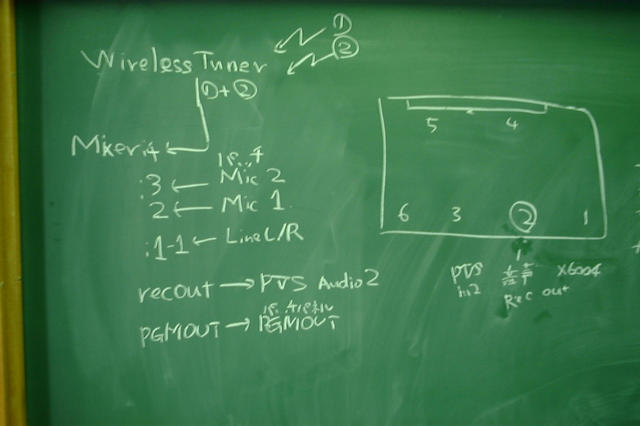 ①
②
Wireless Tuner
①+②
Mixer:4 ←
:3 ← Mic 2
:2 ← Mic 1
:1-1 ← Line L/R
recout → PVS Audio2
PGMOUT → PGMOUT
5 4
6 3 ② 1
PVS X6004
in2 Rec out